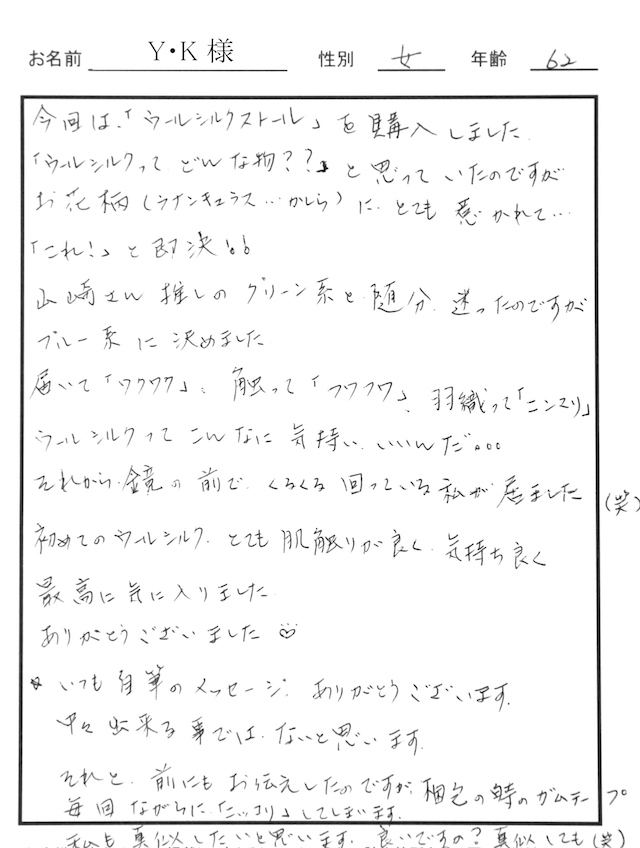 お名前 Y・K 様 性別 女 年齢 62
今回は、「ウールシルクストール」を購入しました
「ウールシルクって どんな物??」と思っていたのですが
お花柄(ラナンキュラス…かしら)に とても 惹かれて…
「これ!」と即決!!
山崎さん 推しの グリーン系と 随分 迷ったのですが
ブルー系に決めました
届いて「ワクワク」、触って「フワフワ」、羽織って「ニンマリ」
ウールシルクって こんなに 気持い いいんだ。。。
それから 鏡の前で くるくる 回っている 私が 居ました(笑)
初めてのウールシルク とても 肌触りが良く 気持ち良く
最高に気に入りました
ありがとうございました
いつも 自筆のメッセージ ありがとうございます。
中々出来る事では、ないと思います。
それと、前にもお伝えしたのですが、梱包の時のガムテープ
毎回 ながらに してしまいます。
私も真似したいと思います。良いですの?真似しても(笑)